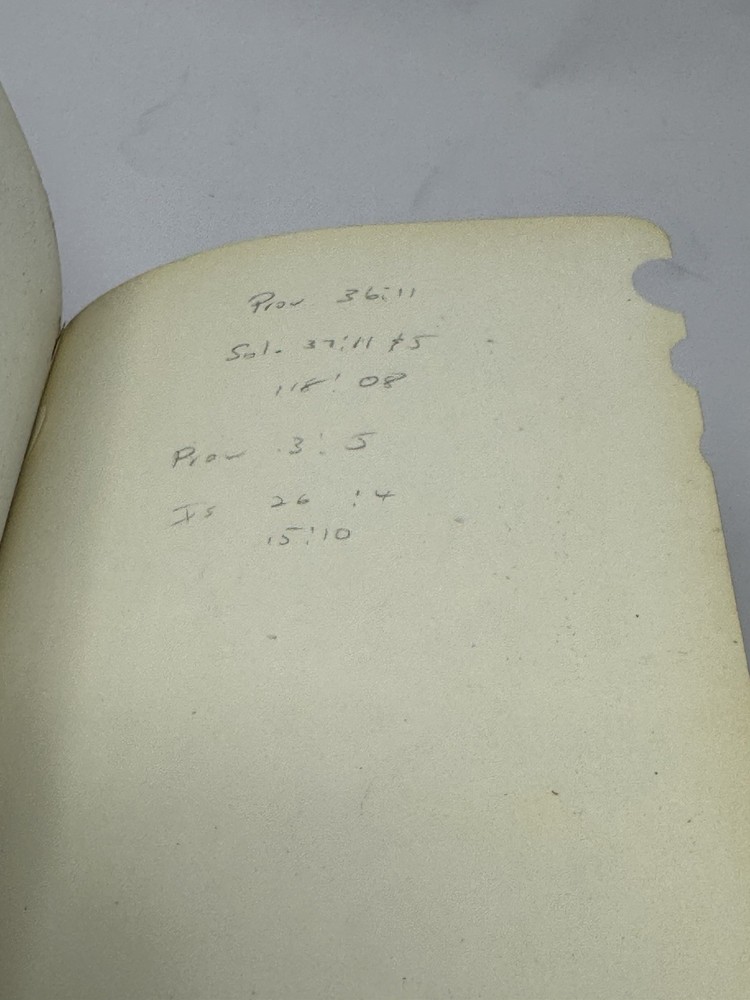 Prov 36:11
Sol. 37:11 & 5
118: 08
Prov 3: 5
Is 26 :4
15:10